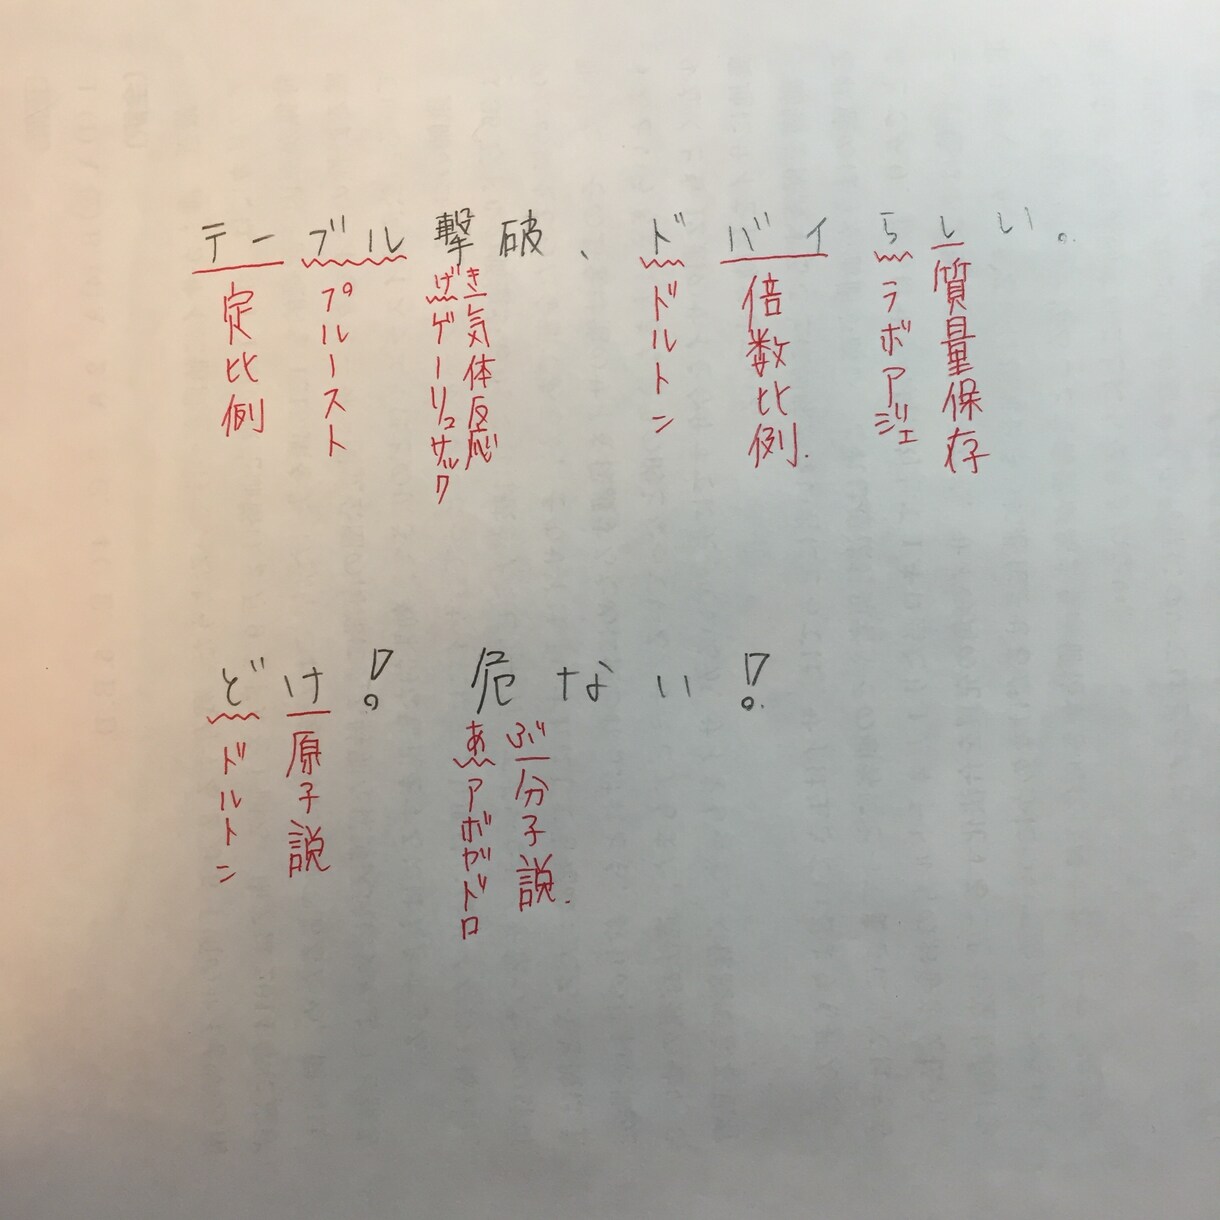 テーブル撃破、ドバイらしい。
定比例
プルースト
げき
ゲーリュサック
気体反応
ドルトン
倍数比例.
ラボアジェ
質量保存
どけ！ 危ない！
ドルトン
原子説
あぶ
アボガドロ
分子説.